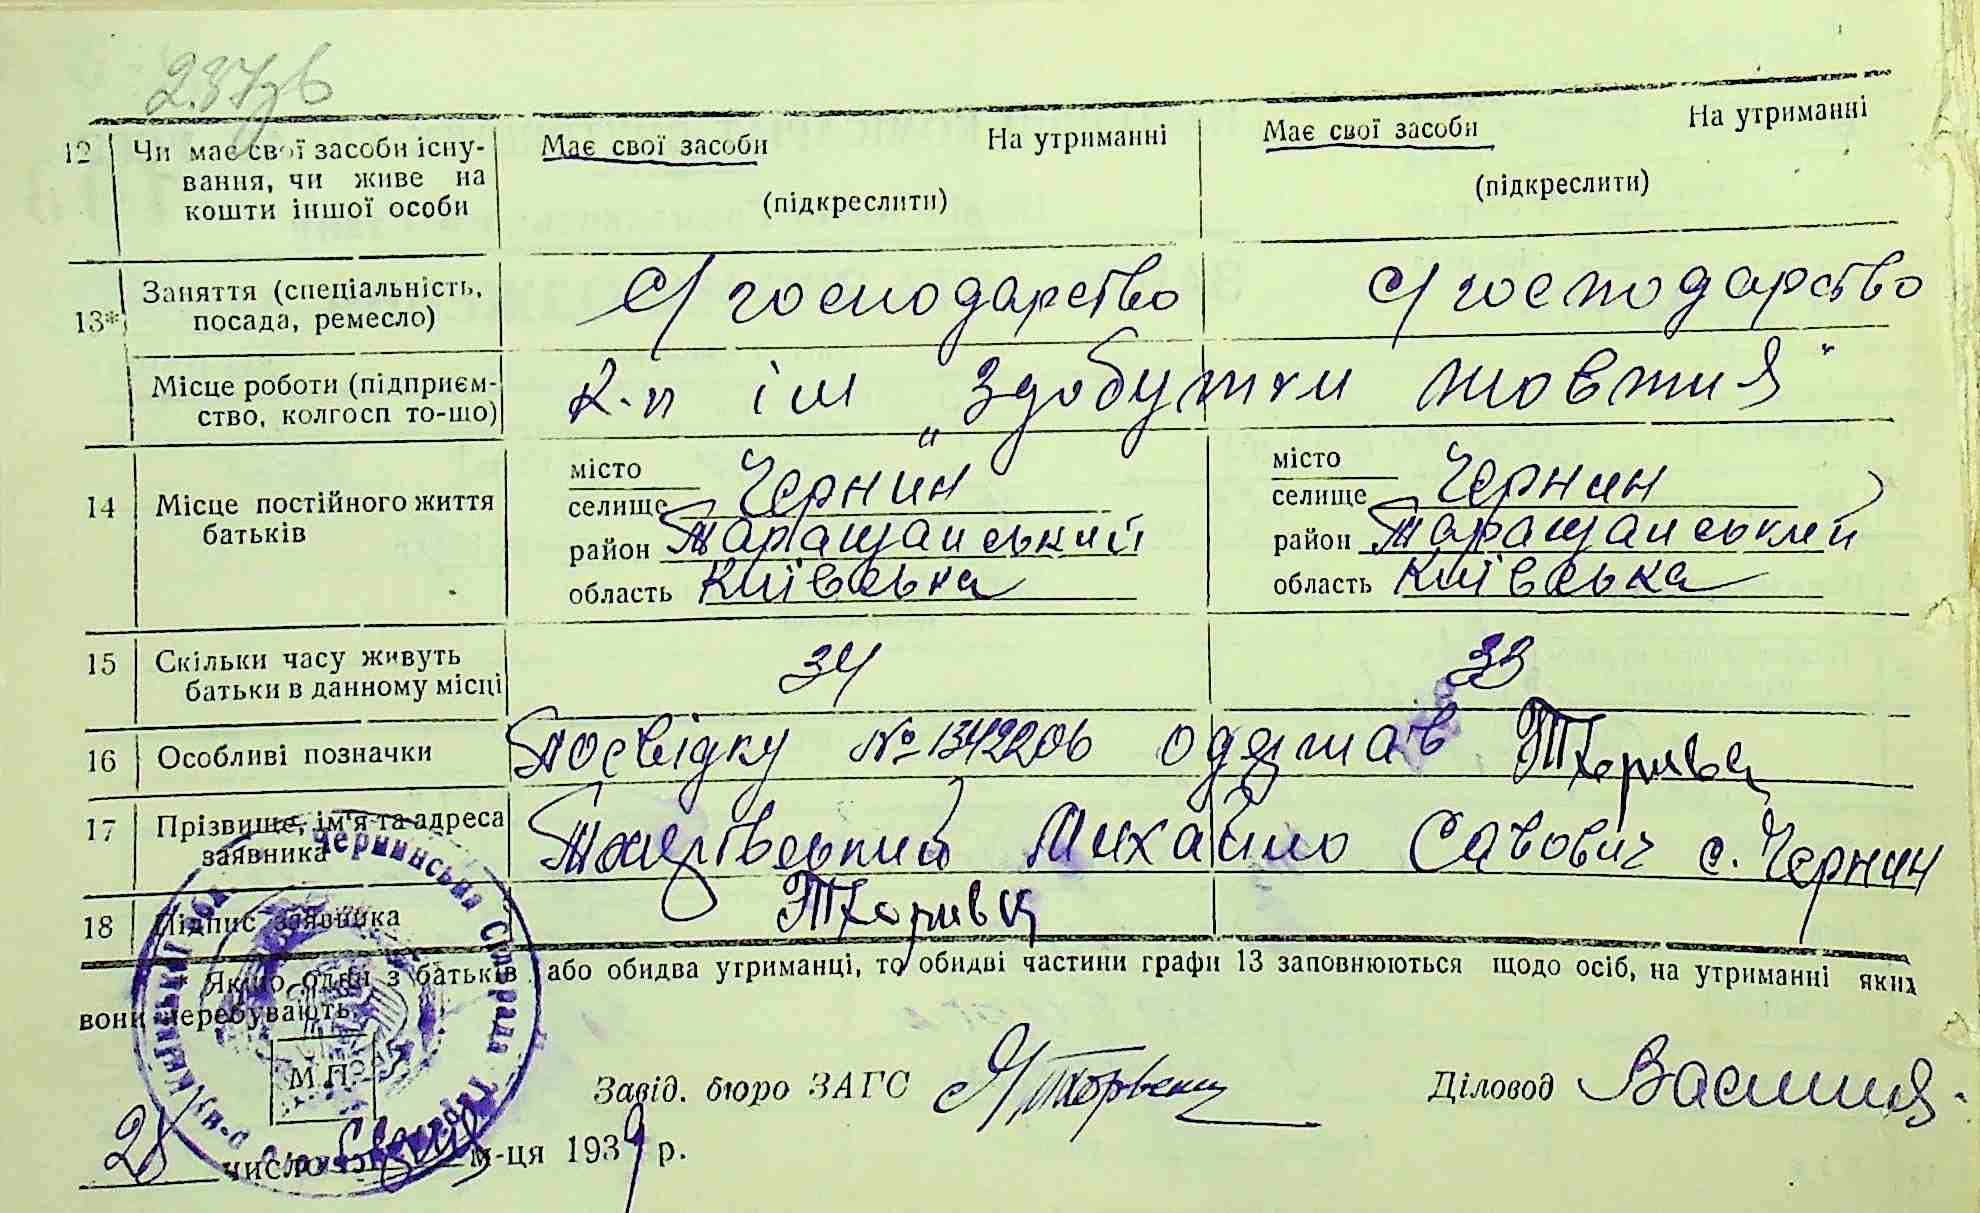 12 Чи має свої засоби існу- Має свої засоби На утриманні Має свої засоби На утриманні
вання, чи живе на
кошти іншої особи (підкреслити) (підкреслити)
13* Заняття (спеціальність, с/господарство с/господарство
посада, ремесло)
Місце роботи (підприєм- К-п ім „Здобутки жовтня"
ство, колгосп то-що)
14 Місце постійного життя місто місто
батьків селище Чернин селище Чернин
район Таращанський район Таращанський
область Київська область Київська
15 Скільки часу живуть 34 33
батьки в данному місці
16 Особливі позначки Посвідку № 1342206 одержав
17 Прізвище, ім'я та адреса Михайло Савович с. Чернин
заявника
18 Підпис заявника
* Якщо один з батьків або обидва утриманці, то обидві частини графи 13 заповнюються щодо осіб, на утриманні яких
вони перебувають.
М.П.
Завід. бюро ЗАГС Діловод
28 число Січня м-ця 1939 р.
Чернинська Сільрада